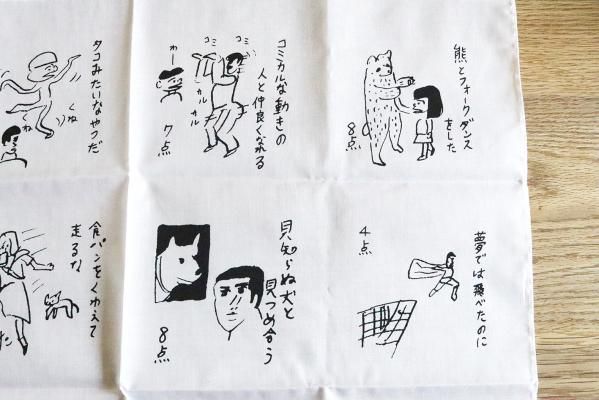 熊とフォークダンス
をした
8点
コミカルな動きの
人と仲良くなれる
コミ
コミ
カル
カル
わー
7点
タコみたいなやつだ
くね
くね
夢では飛べたのに
4点
見知らぬ犬と
見つめ合う
8点
食パンをくわえて
走るな
た